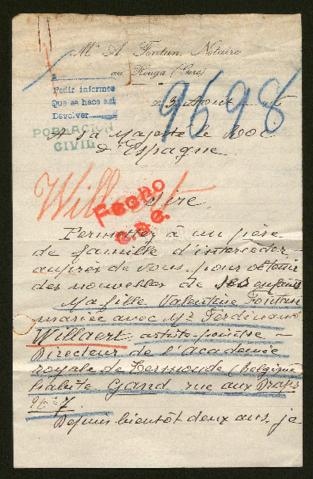 Me A. Fontan, Notaire
au Houga (Gers)
Pedir informes
Que se hace así
Devolver
9698
POBLACION
CIVIL
A Sa Majesté le Roi
d'Espagne
Willaert
Sire,
Fecho
Permettez à un père
de famille d'intercéder
auprès de Vous, pour obtenir
des nouvelles de ses enfants
Ma fille Valentine Fontan
mariée avec Mr Ferdinand
Willaert, artiste peintre
Directeur de l'Académie
royale de Termonde (Belgique
habite Gand rue aux Draps
no 7
Depuis bientôt deux ans, je